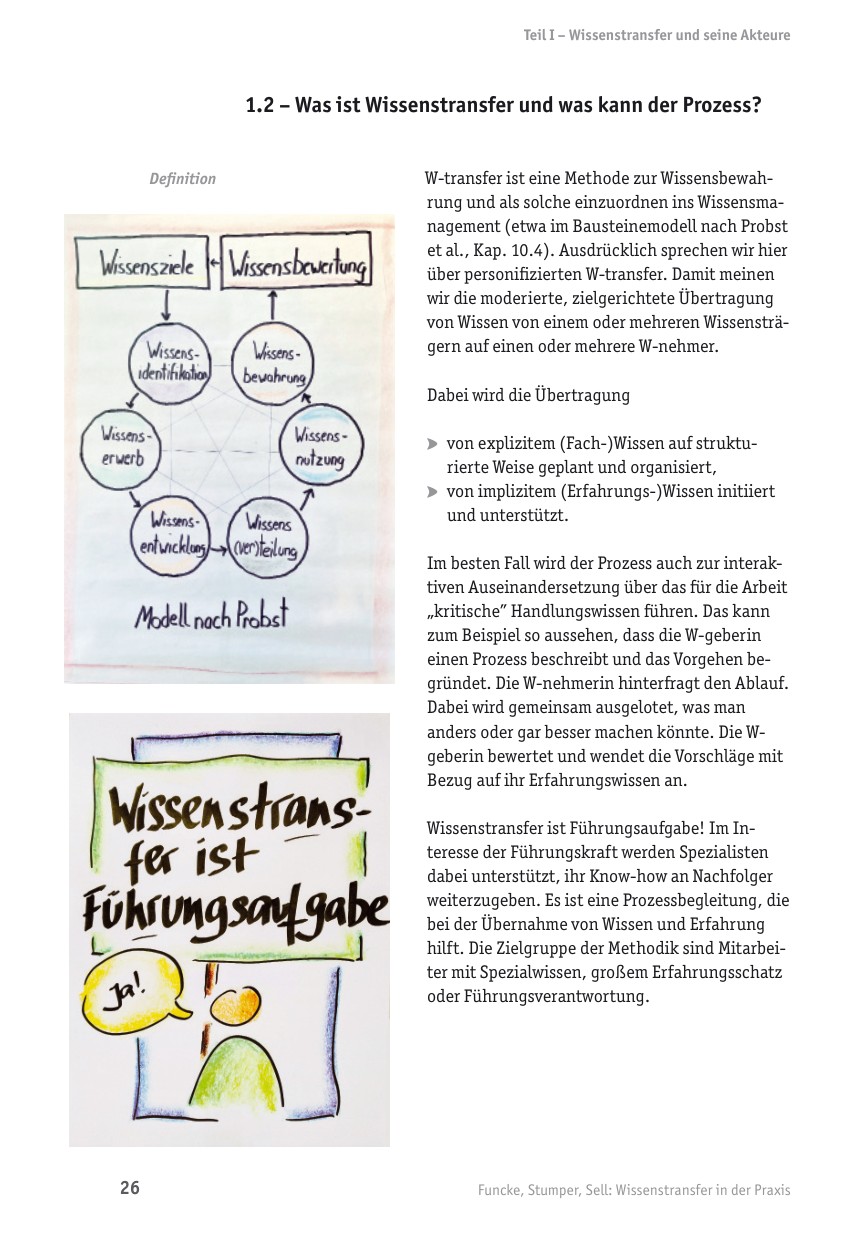 Teil I – Wissenstransfer und seine Akteure
1.2 – Was ist Wissenstransfer und was kann der Prozess?
Definition
Wissensziele
Wissensbewertung
Wissens-
identifikation
Wissens-
bewahrung
Wissens-
erwerb
Wissens-
nutzung
Wissens-
entwicklung
Wissens
(ver)teilung
Modell nach Probst
Wissenstrans-
fer ist
Führungsaufgabe
Ja!
W-transfer ist eine Methode zur Wissensbewah-
rung und als solche einzuordnen ins Wissensma-
nagement (etwa im Bausteinemodell nach Probst
et al., Kap. 10.4). Ausdrücklich sprechen wir hier
über personifizierten W-transfer. Damit meinen
wir die moderierte, zielgerichtete Übertragung
von Wissen von einem oder mehreren Wissensträ-
gern auf einen oder mehrere W-nehmer.
Dabei wird die Übertragung
von explizitem (Fach-)Wissen auf struktu-
rierte Weise geplant und organisiert,
von implizitem (Erfahrungs-)Wissen initiiert
und unterstützt.
Im besten Fall wird der Prozess auch zur interak-
tiven Auseinandersetzung über das für die Arbeit
„kritische” Handlungswissen führen. Das kann
zum Beispiel so aussehen, dass die W-geberin
einen Prozess beschreibt und das Vorgehen be-
gründet. Die W-nehmerin hinterfragt den Ablauf.
Dabei wird gemeinsam ausgelotet, was man
anders oder gar besser machen könnte. Die W-
geberin bewertet und wendet die Vorschläge mit
Bezug auf ihr Erfahrungswissen an.
Wissenstransfer ist Führungsaufgabe! Im In-
teresse der Führungskraft werden Spezialisten
dabei unterstützt, ihr Know-how an Nachfolger
weiterzugeben. Es ist eine Prozessbegleitung, die
bei der Übernahme von Wissen und Erfahrung
hilft. Die Zielgruppe der Methodik sind Mitarbei-
ter mit Spezialwissen, großem Erfahrungsschatz
oder Führungsverantwortung.
26
Funcke, Stumper, Sell: Wissenstransfer in der Praxis